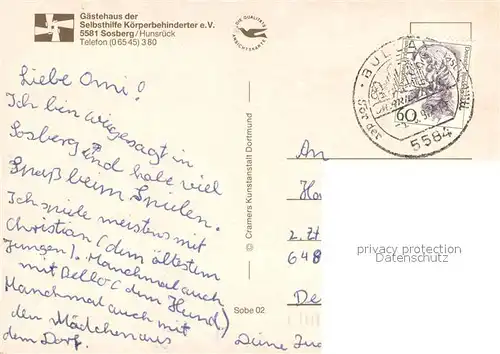 Gästehaus der
Selbsthilfe Körperbehinderter e.V.
5581 Sosberg/Hunsrück
Telefon (0 65 45) 3 80
DIE QUALITÄTS
ANSICHTSKARTE
BULLAY
60
5584
Liebe Omi!
Ich bin wiegesagt in
Sosberg und habe viel
Spaß beim Spielen.
Ich spiele meistens mit
Christian (dem ältestem
Jungen). Manchmal auch
mit Bello (dem Hund.)
Manchmal auch mit
den Mädchen aus
dem Dorf.
Deine
© Cramers Kunstanstalt Dortmund
Sobe 02
An
2. Zt
648
De
privacy protection
Datenschutz